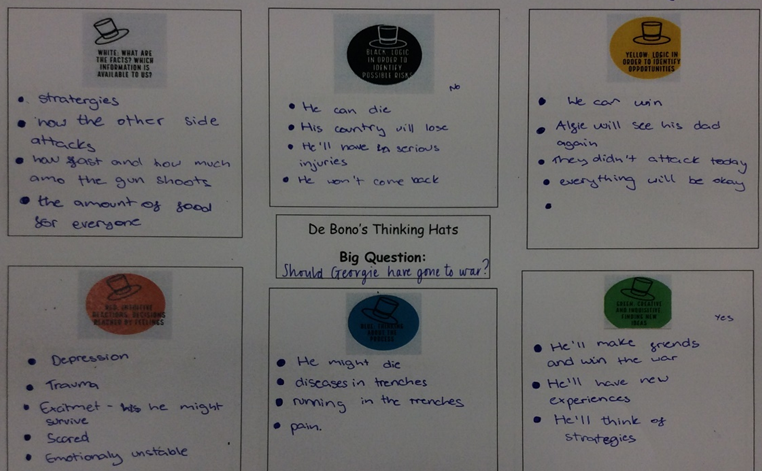 WHITE: WHAT ARE
THE FACTS? WHICH
INFORMATION IS
AVAILABLE TO US?
• stratergies
• how the other side
attacks
• how fast and how much
amo the gun shoots
• the amount of food
for everyone
BLACK: LOGIC
IN ORDER TO
IDENTIFY
POSSIBLE RISKS
No
• He can die
• His country will lose
• He'll have serious
injuries
• He won't come back
YELLOW: LOGIC IN
ORDER TO IDENTIFY
OPPORTUNITIES
• We can win
• Alfie will see his dad
again
• They didn't attack today
• everything will be okay
•
De Bono's Thinking Hats
Big Question:
Should Georgie have gone to war?
RED: INTUITIVE
REACTIONS, DECISIONS
REACHED BY FEELINGS
• Depression
• Trauma
• Excitmet - he might
survive
• Scared
• Emotionally unstable
BLUE: THINKING
ABOUT THE
PROCESS
• He might die
• diseases in trenches
• running in the trenches
• pain.
GREEN: CREATIVE
AND INNOVATIVE
FINDING NEW
IDEAS
YES
• He'll make friends
and win the war
• He'll have new
experiences
• He'll think of
strategies